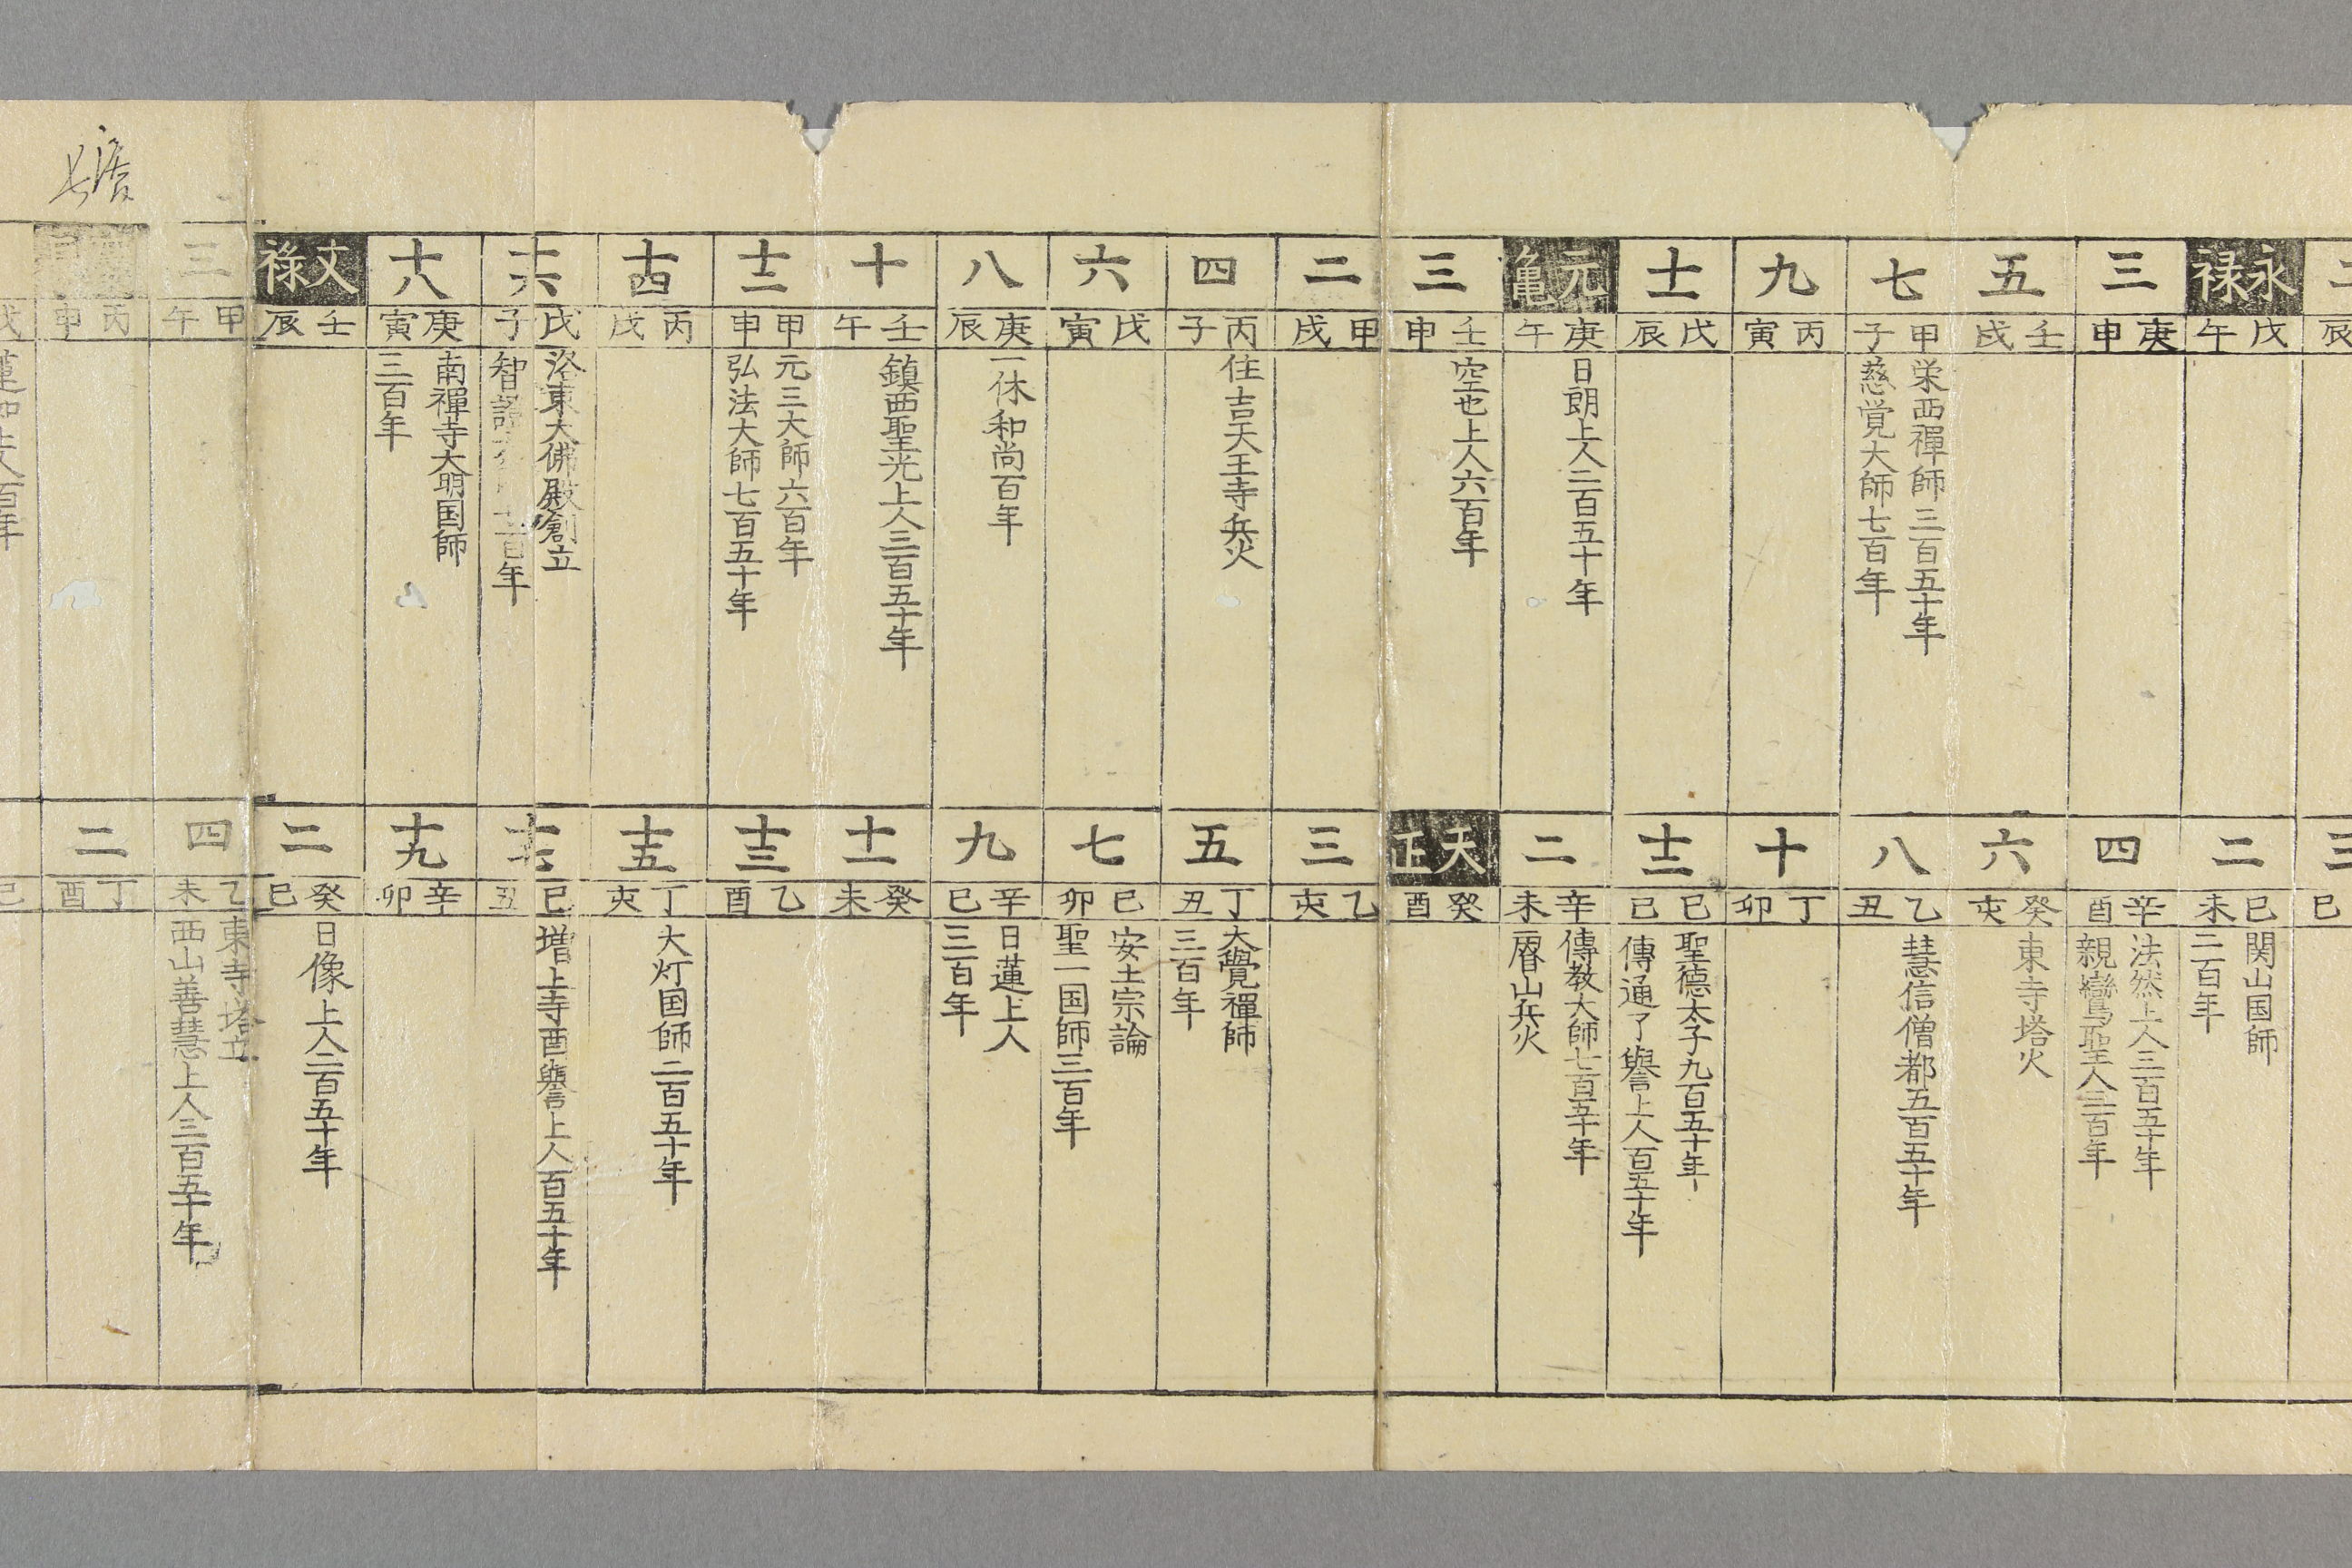 辰
巳
永禄
戊午
二
己未
関山国師
二百年
三
庚申
四
辛酉
法然上人三百五十年
親鸞聖人三百年
五
壬戌
六
癸亥
東寺塔火
七
甲子
栄西禪師三百五十年
慈覚大師七百年
八
乙丑
慧信僧都五百五十年
九
丙寅
十
丁卯
十一
戊辰
十二
己巳
聖德太子九百五十年
傳通了譽上人百五十年
元亀
庚午
日朗上人二百五十年
二
辛未
傳教大師七百五十年
山兵火
三
壬申
空也上人六百年
天正
癸酉
二
甲戌
三
乙亥
四
丙子
住吉天王寺兵火
五
丁丑
大覺禪師
三百年
六
戊寅
七
己卯
安土宗論
聖一国師三百年
八
庚辰
一休和尚百年
九
辛巳
日蓮上人
三百年
十
壬午
鎮西聖光上人三百五十年
十一
癸未
十二
甲申
元三大師六百年
弘法大師七百五十年
十三
乙酉
十四
丙戌
十五
丁亥
大灯国師二百五十年
十六
戊子
洛東大佛殿創立
智 百年
十七
己丑
増上寺酉譽上人百五十年
十八
庚寅
南禪寺大明国師
三百年
十九
辛卯
文禄
壬辰
二
癸巳
日像上人二百五十年
三
甲午
四
乙未
東寺塔立
西山善慧上人三百五十年
丙申
二
丁酉
戊
蓮如上人百年